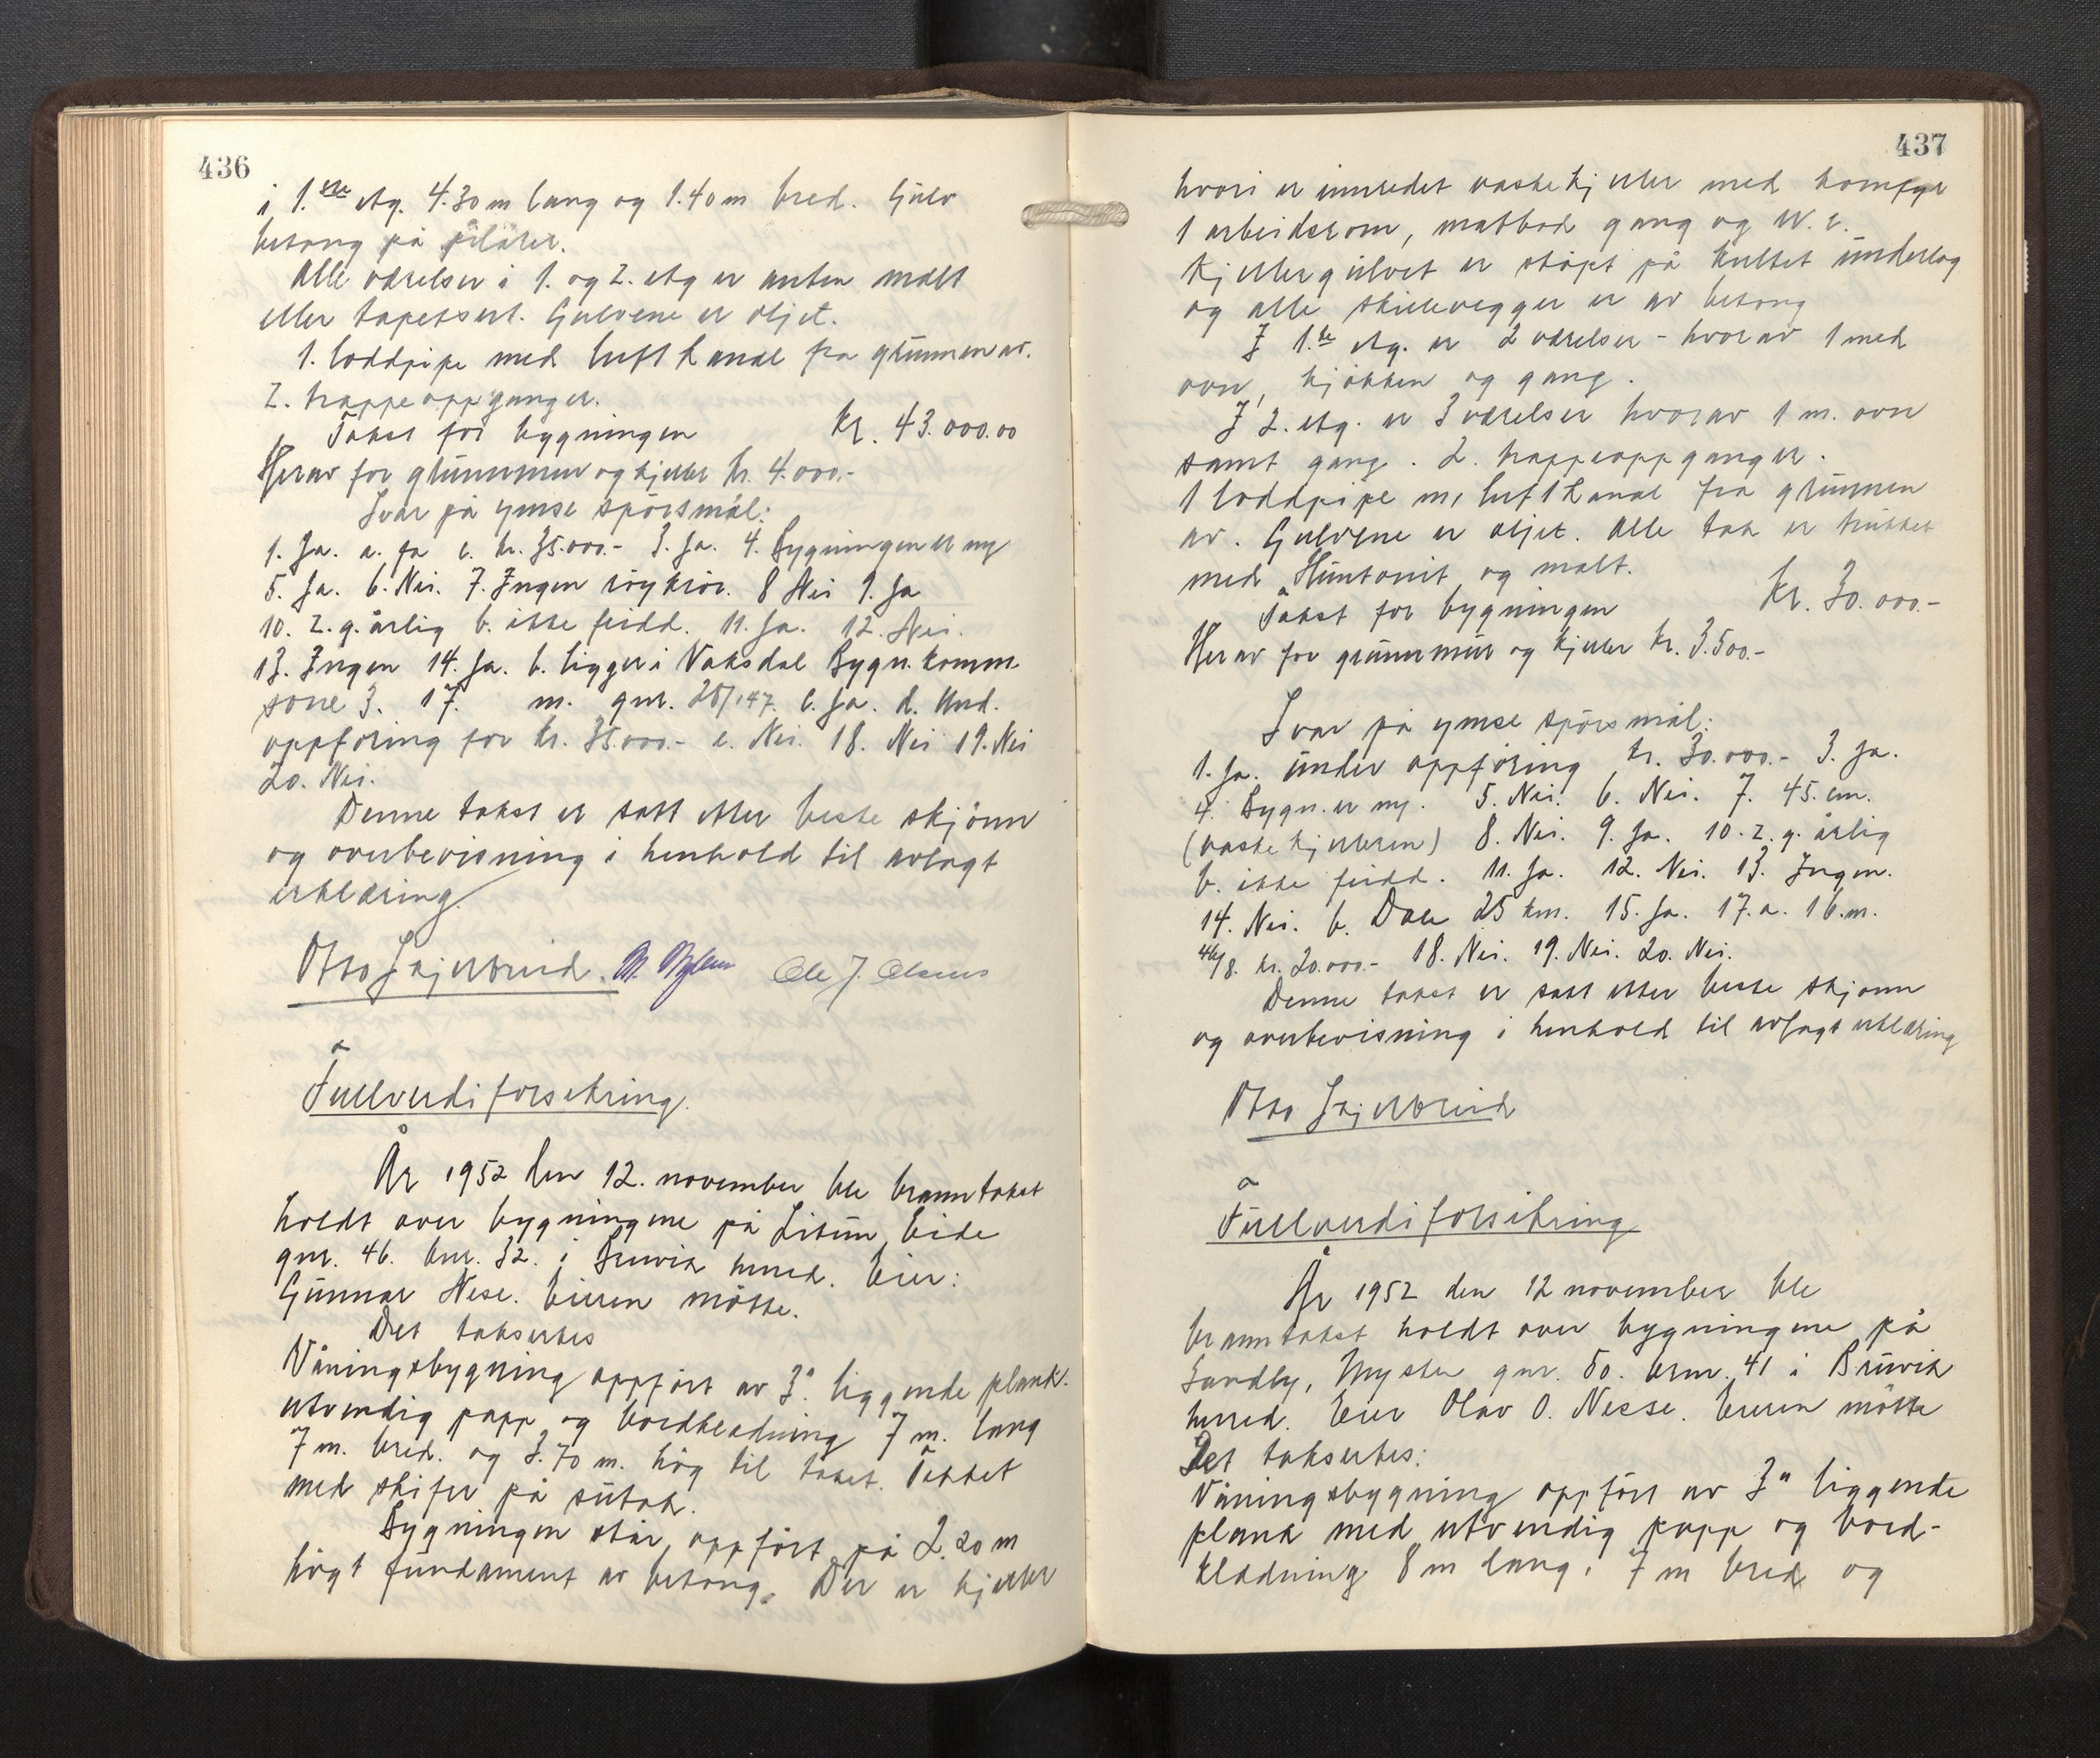 436
i 1.ste etg. 4.30 m lang og 1.40 m bred. Gulv
betong på pilarer.
Alle værelser i 1. og 2. etg er anten malt
eller tapetsert. Gulvene er oljet.
1. loddpipe med luftkanal fra grunnen av.
2. trappeoppganger.
Takst for bygningen kr. 43.000.00
Herav for grunnmur og kjeller kr. 4.000.-
Svar på ymse spörsmål:
1. Ja. a. Ja c. kr. 35.000.- 3. Ja. 4. Bygningen er ny
5. Ja. 6. Nei. 7. Ingen röykrör. 8 Nei 9. Ja
10. 2. g. årlig b. ikke feidd. 11. Ja. 12. Nei.
13. Ingen 14. Ja. b. ligger i Vaksdal Bygn. komm.
sone 3. 17. m. gnr. 25/147. c. Ja. d. Und.
oppföring for kr. 35.000.- e. Nei. 18. Nei 19. Nei
20. Nei.
Denne takst er satt etter beste skjönn
og overbevisning i henhold til avlagt
erklæring.
Otto Skjerveid. Ole J. Olsnes
Fullverdiforsikring.
År 1952 den 12. november ble branntakst
holdt over bygningene på Litun, Eide
gnr. 46. bnr. 32. i Bruvik herred. Eier:
Gunnar Nese. Eieren mötte.
Det taksertes
Våningsbygning oppfört av 3" liggende plank.
utvendig papp og bordkledning 7 m. lang
7 m. bred. og 3.70 m. høg til taket. Tekket
med skifer på sutak.
Bygningen står oppfört på 2.20 m
högt fundament av betong. Der er kjeller
437
hvori er innredet vaskekjeller med komfyr
1 arbeidsrom, matbod gang og W.c.
Kjellergulvet er stöpt på kultet underlag
og alle skillevegger er av betong
I 1.ste etg. er 2 værelser - hvorav 1 med
ovn, kjökken og gang.
I 2. etg. er 3 værelser hvorav 1 m. ovn
samt gang. 2. trappeoppganger.
1 loddpipe m, luftkanal fra grunnen
av. Gulvene er oljet. Alle tak er trukket
med Huntonit og malt.
Takst for bygningen kr. 30.000.-
Herav for grunnmur og kjeller kr. 3.500.-
Svar på ymse spörsmål:
1. Ja. under oppföring kr. 30.000.- 3. Ja.
4. Bygn. er ny. 5. Nei. 6. Nei. 7. 45. cm.
(vaskekjelleren) 8. Nei. 9. Ja. 10. 2. g. årlig
b. ikke feidd. 11. Ja. 12. Nei. 13. Ingen.
14. Nei. b. Dale 25 km. 15. Ja. 17. a. 16. m.
46/8. kr. 20.000.- 18. Nei. 19. Nei. 20. Nei.
Denne takst er satt etter beste skjönn
og overbevisning i henhold til avlagt erklæring
Otto Skjerveid
Fullverdiforsikring
År 1952 den 12 november ble
branntakst holdt over bygningene på
Sandby, Myster gnr. 50. bnr. 41 i Bruvik
herred. Eier Olav O. Nesse. Eieren mötte
Det taksertes:
Våningsbygning oppfört av 3" liggende
plank med utvendig papp og bord-
kledning 8 m lang. 7 m bred og